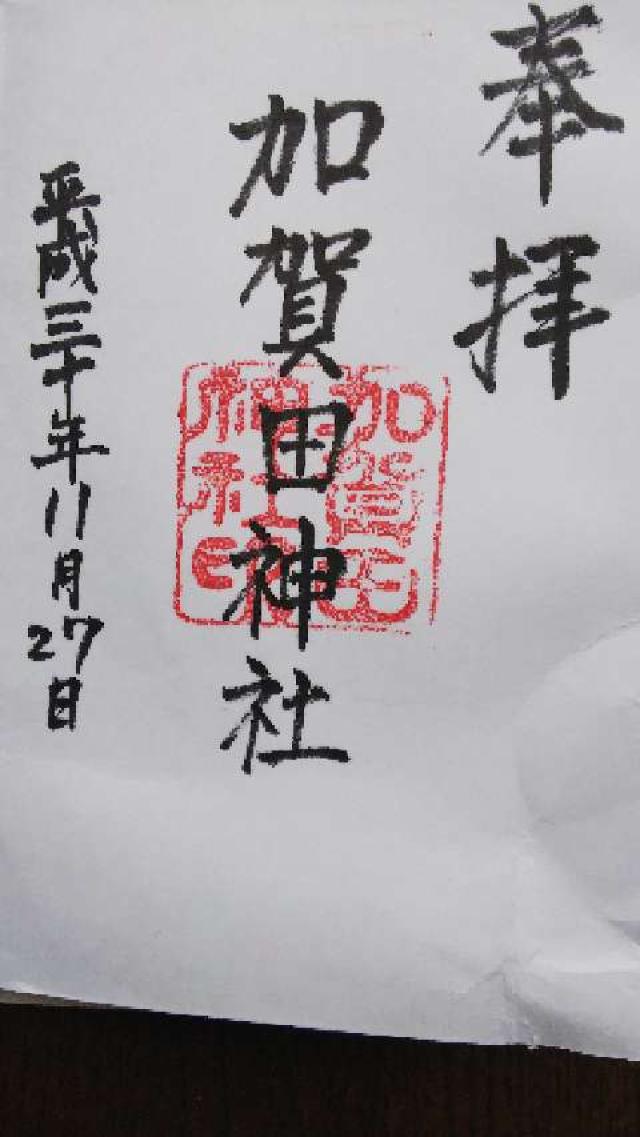 奉拝
加賀田神社
加賀田
神社印
平成三十年11月27日